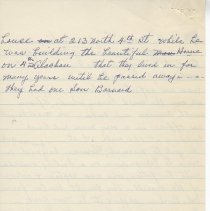 house at 213 North 4th St while he
was building the beautiful Home
on 4th that they lived in for
many years until he passed away - - -
they had one son Bernard